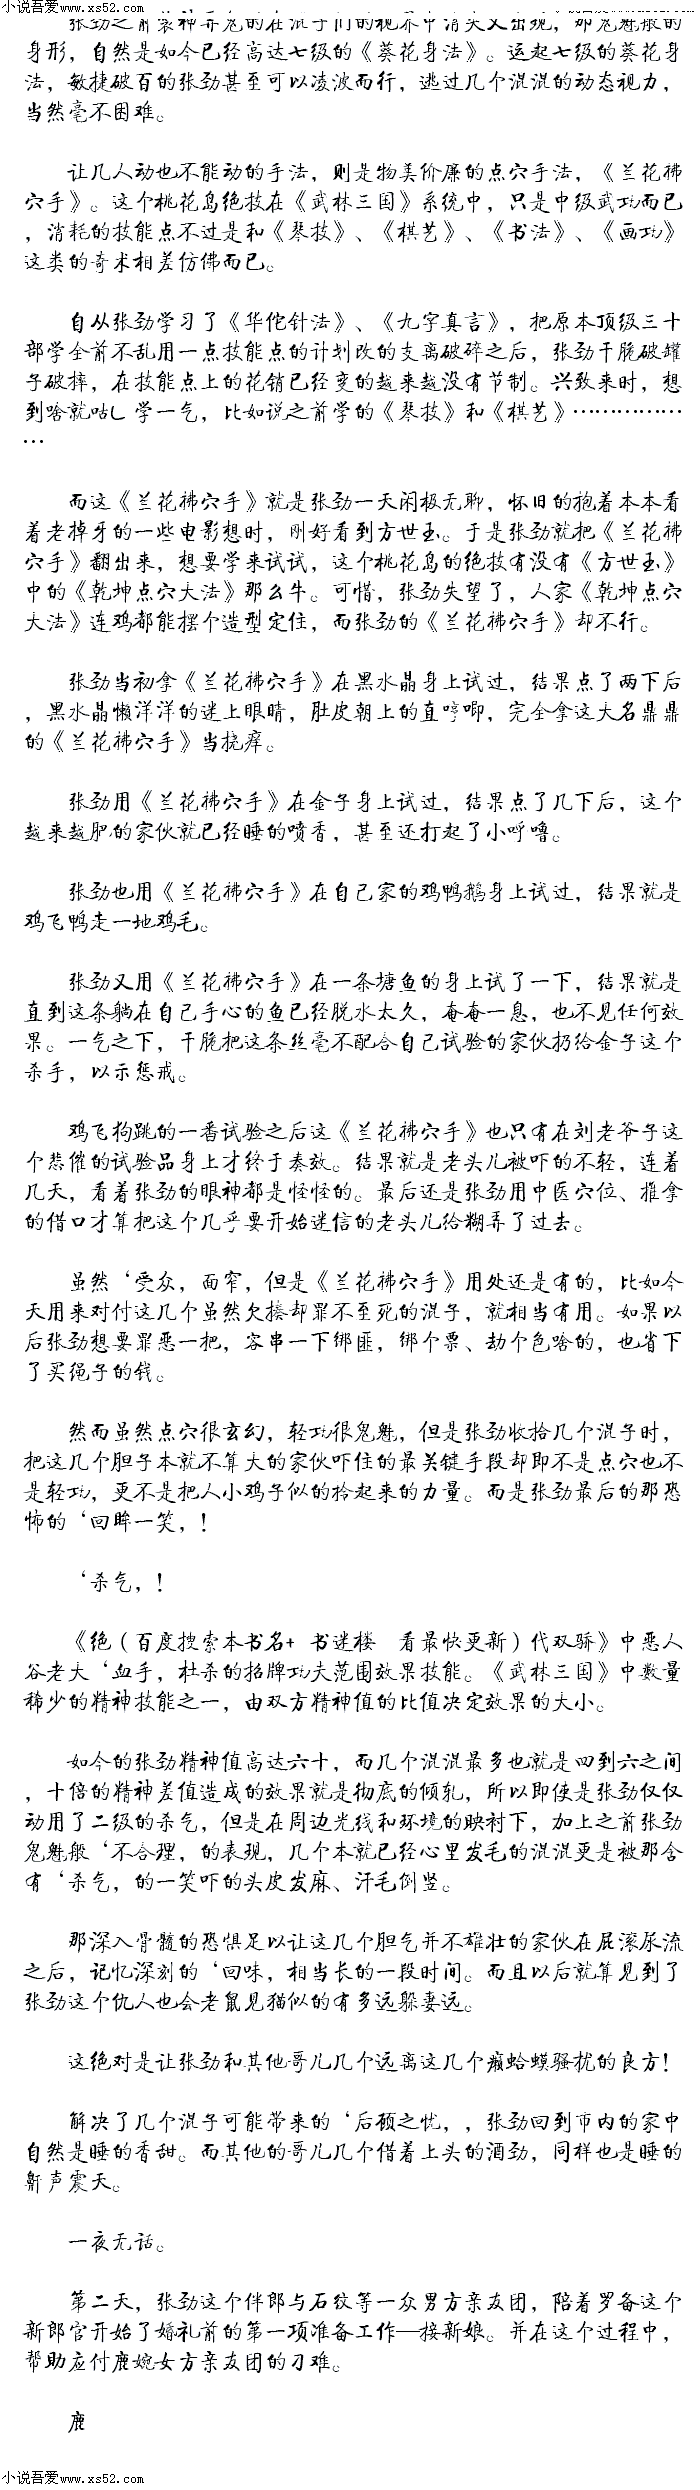 小说吾爱www.xs52.com
小说吾爱www.xs52.com
张劲之前装神弄鬼的在混子们的视界中消失又出现，那鬼魅般的
身形，自然是如今已经高达七级的《葵花身法》。运起七级的葵花身
法，敏捷破百的张劲甚至可以凌波而行，逃过几个混混的动态视力，
当然毫不困难。
让几人动也不能动的手法，则是物美价廉的点穴手法，《兰花拂
穴手》。这个桃花岛绝技在《武林三国》系统中，只是中级武功而已
，消耗的技能点不过是和《琴技》、《棋艺》、《书法》、《画功》
这类的奇术相差仿佛而已。
自从张劲学习了《华佗针法》、《九字真言》，把原本顶级三十
部学全前不乱用一点技能点的计划改的支离破碎之后，张劲干脆破罐
子破摔，在技能点上的花销已经变的越来越没有节制。兴致来时，想
到啥就咕乚 学一气，比如说之前学的《琴技》和《棋艺》………………
…
而这《兰花拂穴手》就是张劲一天闲极无聊，怀旧的抱着本本看
着老掉牙的一些电影想时，刚好看到方世玉。于是张劲就把《兰花拂
穴手》翻出来，想要学来试试，这个桃花岛的绝技有没有《方世玉》
中的《乾坤点穴大法》那么牛。可惜，张劲失望了，人家《乾坤点穴
大法》连鸡都能摆个造型定住，而张劲的《兰花拂穴手》却不行。
张劲当初拿《兰花拂穴手》在黑水晶身上试过，结果点了两下后
，黑水晶懒洋洋的迷上眼睛，肚皮朝上的直哼唧，完全拿这大名鼎鼎
的《兰花拂穴手》当挠痒。
张劲用《兰花拂穴手》在金子身上试过，结果点了几下后，这个
越来越肥的家伙就已经睡的喷香，甚至还打起了小呼噜。
张劲也用《兰花拂穴手》在自己家的鸡鸭鹅身上试过，结果就是
鸡飞鸭走一地鸡毛。
张劲又用《兰花拂穴手》在一条塘鱼的身上试了一下，结果就是
直到这条躺在自己手心的鱼已经脱水太久，奄奄一息，也不见任何效
果。一气之下，干脆把这条丝毫不配合自己试验的家伙扔给金子这个
杀手，以示惩戒。
鸡飞狗跳的一番试验之后这《兰花拂穴手》也只有在刘老爷子这
个悲催的试验品身上才终于奏效。结果就是老头儿被吓的不轻，连着
几天，看着张劲的眼神都是怪怪的。最后还是张劲用中医穴位、推拿
的借口才算把这个几乎要开始迷信的老头儿给糊弄了过去。
虽然‘受众，面窄，但是《兰花拂穴手》用处还是有的，比如今
天用来对付这几个虽然欠揍却罪不至死的混子，就相当有用。如果以
后张劲想要罪恶一把，客串一下绑匪，绑个票、劫个色啥的，也省下
了买绳子的钱。
然而虽然点穴很玄幻，轻功很鬼魅，但是张劲收拾几个混子时，
把这几个胆子本就不算大的家伙吓住的最关键手段却即不是点穴也不
是轻功，更不是把人小鸡子似的拎起来的力量。而是张劲最后的那恐
怖的‘回眸一笑，！
‘杀气，！
《绝（百度搜索本书名+ 书迷楼 看最快更新）代双骄》中恶人
谷老大‘血手，杜杀的招牌功夫范围效果技能。《武林三国》中数量
稀少的精神技能之一，由双方精神值的比值决定效果的大小。
如今的张劲精神值高达六十，而几个混混最多也就是四到六之间
，十倍的精神差值造成的效果就是彻底的倾轧，所以即使是张劲仅仅
动用了二级的杀气，但是在周边光线和环境的映衬下，加上之前张劲
鬼魅般‘不合理，的表现，几个本就已经心里发毛的混混更是被那含
有‘杀气，的一笑吓的头皮发麻、汗毛倒竖。
那深入骨髓的恐惧足以让这几个胆气并不雄壮的家伙在屁滚尿流
之后，记忆深刻的‘回味，相当长的一段时间。而且以后就算见到了
张劲这个仇人也会老鼠见猫似的有多远躲妻远。
这绝对是让张劲和其他哥儿几个远离这几个癞蛤蟆骚扰的良方！
解决了几个混子可能带来的‘后顾之忧，，张劲回到市内的家中
自然是睡的香甜。而其他的哥儿几个借着上头的酒劲，同样也是睡的
鼾声震天。
一夜无话。
第二天，张劲这个伴郎与石纹等一众男方亲友团，陪着罗备这个
新郎官开始了婚礼前的第一项准备工作—接新娘。并在这个过程中，
帮助应付鹿婉女方亲友团的刁难。
鹿
小说吾爱www.xs52.com